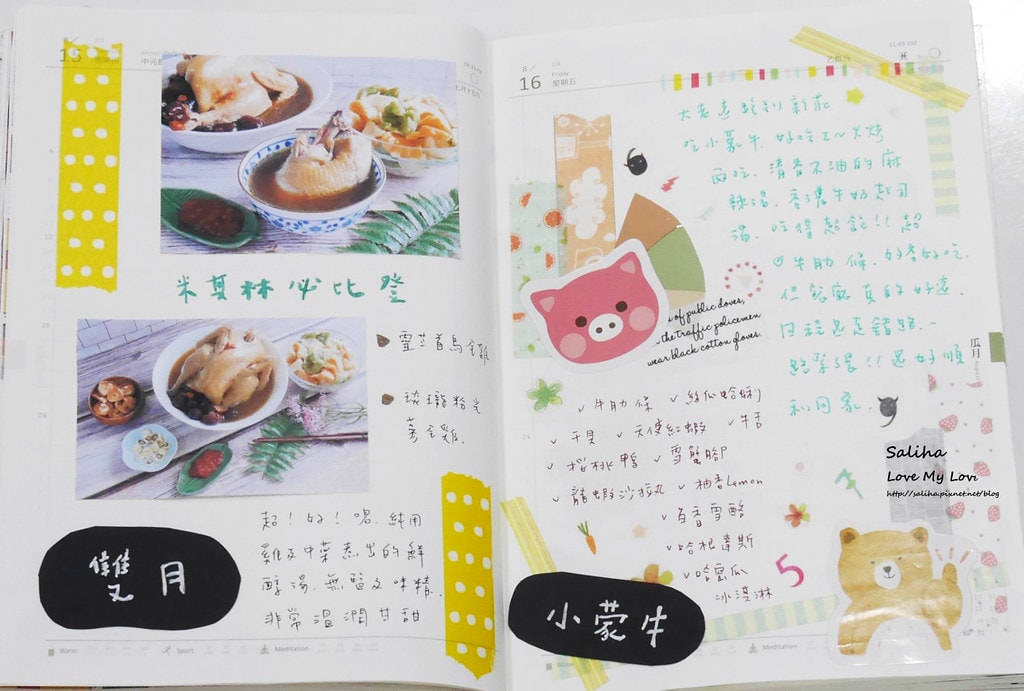 15
米其林必比登
靈芝首烏全雞
玫瓏粉光
蔘全雞.
超!好!喝.純用
雞及中藥煮出的鮮
醇湯.無鹽及味精.
非常溫潤甘甜
雙月
Water
Sport
Meditation
8
16
Friday
星期五
大老遠跑到新莊
吃小蒙牛.好吃ㄛ~火烤
兩吃.清香不油的麻
辣湯.香濃牛奶起司
湯.吃得超飽!!超
牛肋條.好香好吃.
但離家真的好遠.
路緊張!!還好順
利回家.
of public doves,
the traffic policemen
wear black cotton gloves.
牛肋條 絲瓜蛤蜊
干貝 天使紅蝦 牛舌
櫻桃鴨 雪蟹腳
龍蝦沙拉丸 柚香Lemon
百香雪酪
哈根達斯
哈蜜瓜
冰淇淋
5
小蒙牛
Saliha
Love My Lovi
http://saliha.pixnet.net/blog
Meditation